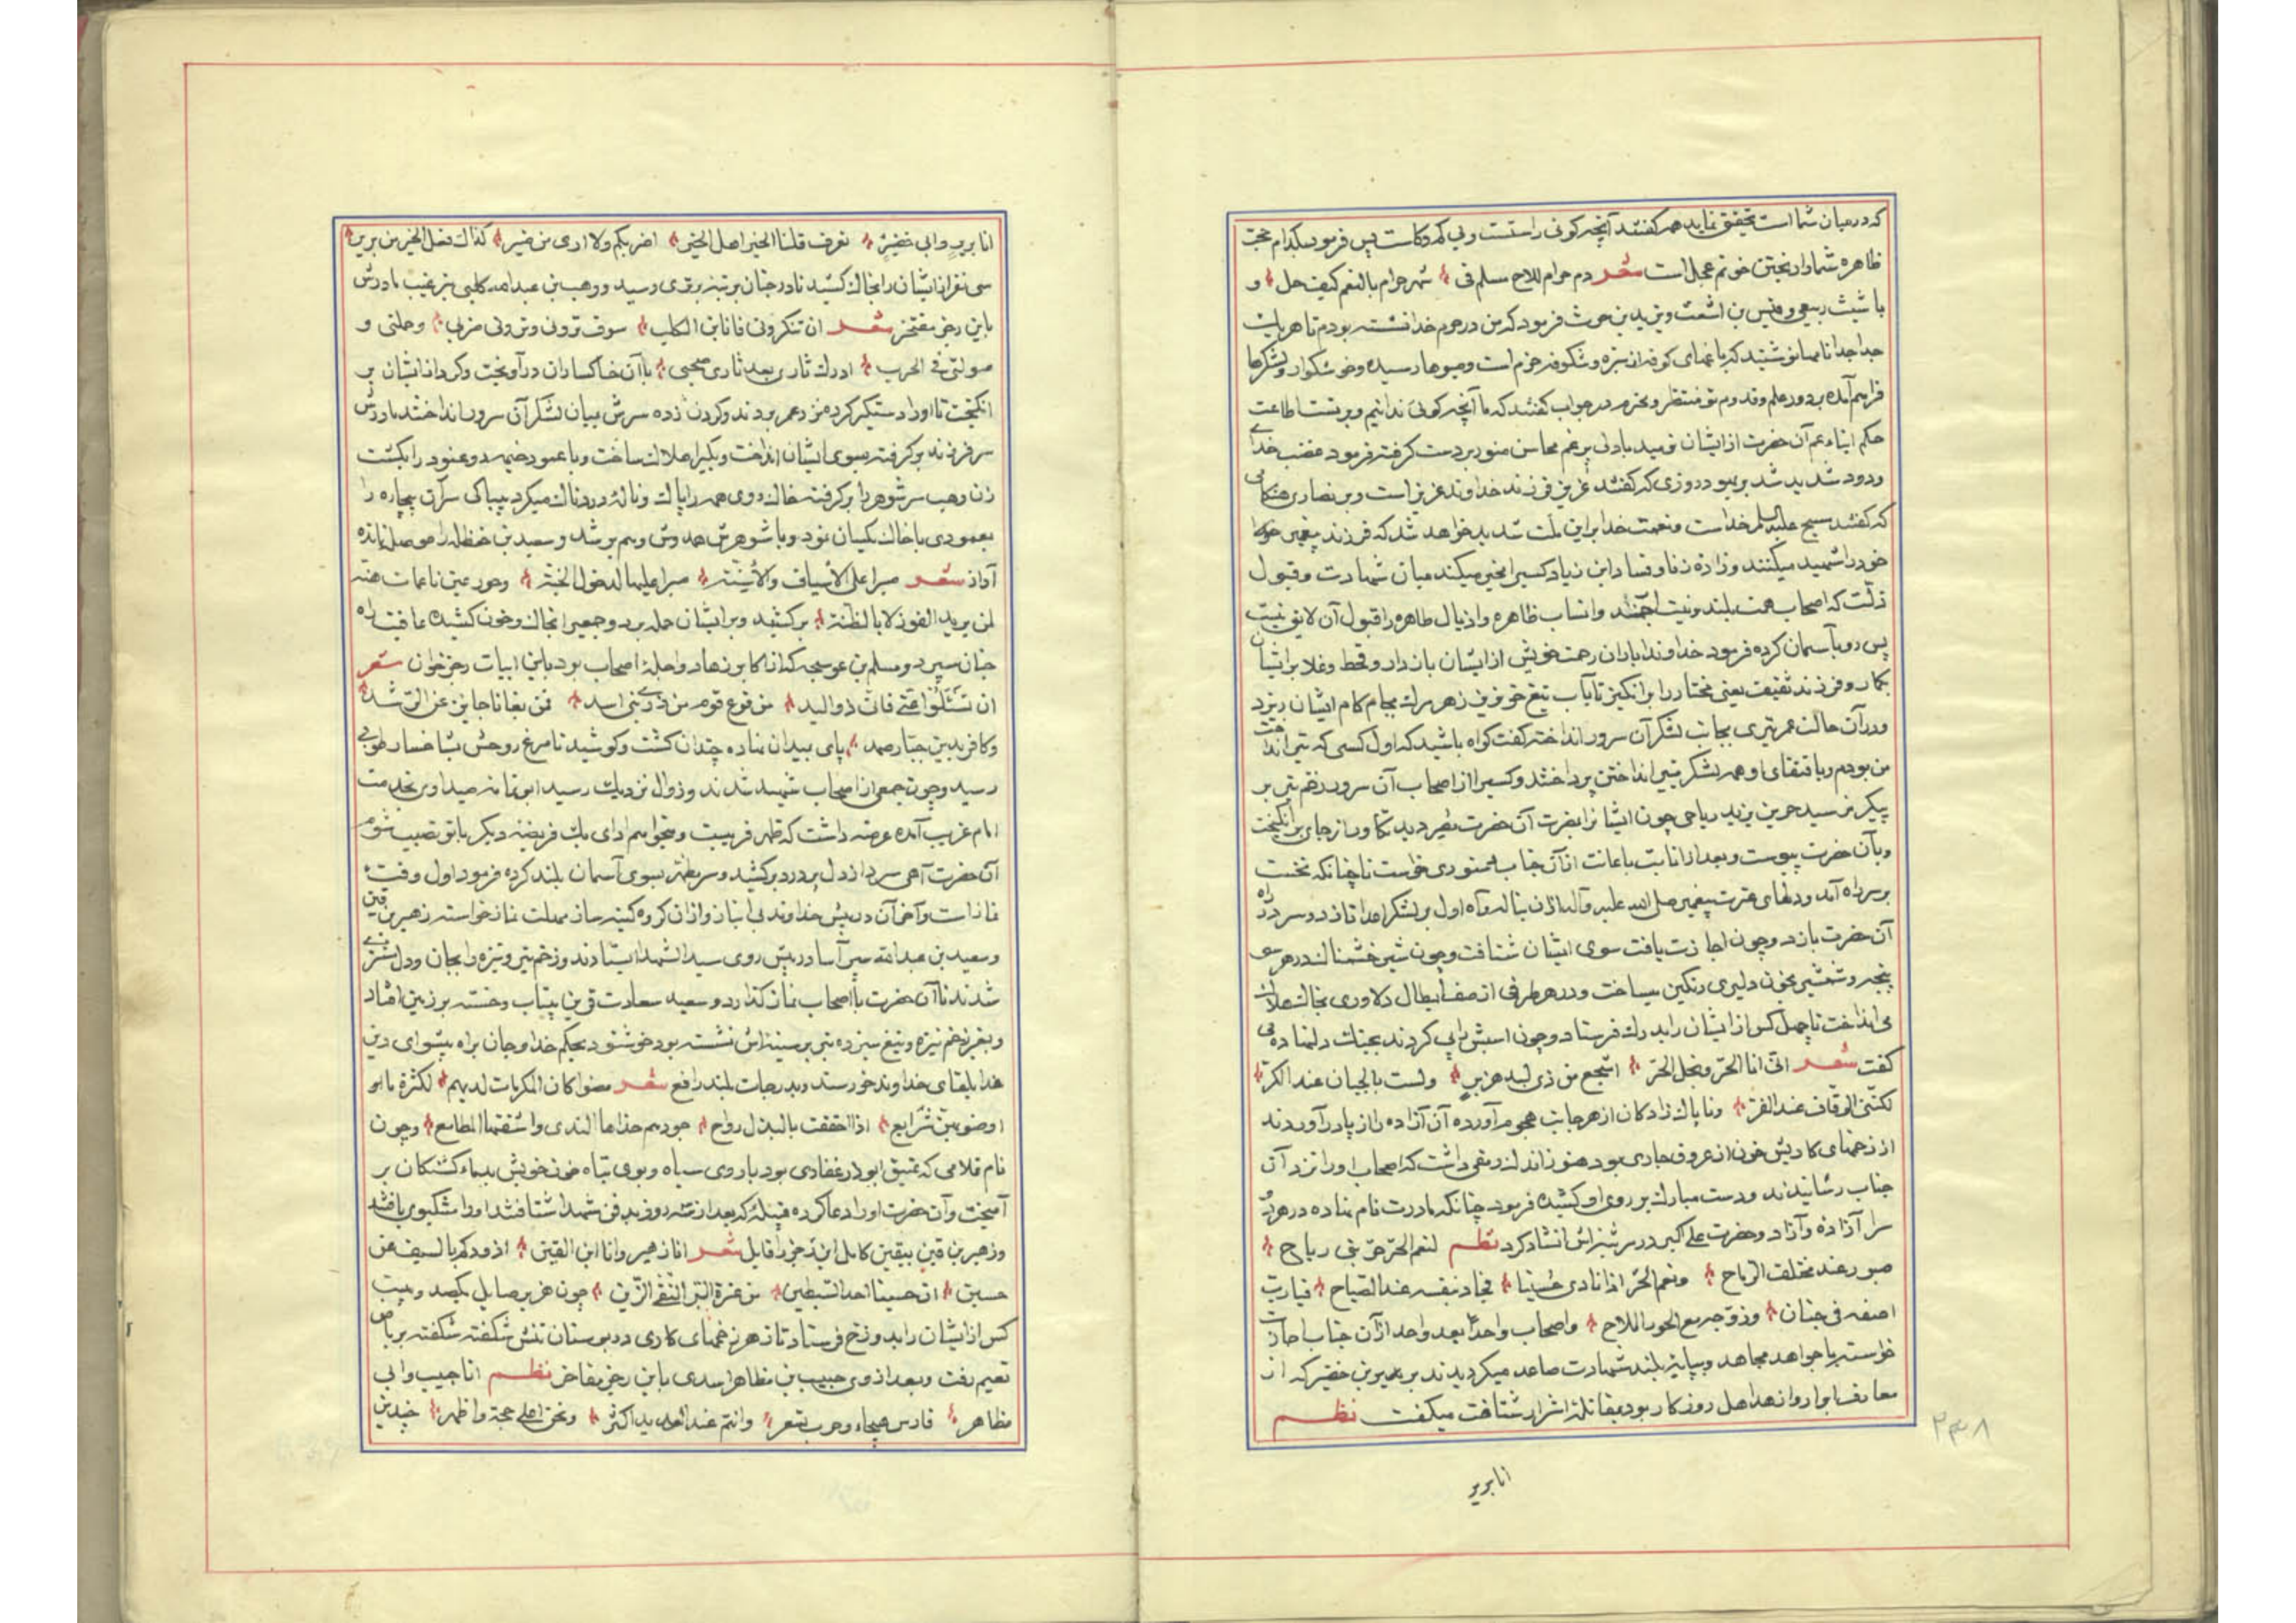 که درمیان شما است تحقیق نماید همه گفتند آنچه کوئی راستست وبی کم وکاست پس فرمود بکدام حجت
ظاهره شما را ریختن خونم عجل است شعر دم حرام للاح مسلم فی شهر حرام بالنعم کیف حل و
با شبث ربعی وقیس بن اشعث ویزید بن حرث فرمود که من در حرم خدا نشسته بودم تا هر یک
جداجدا نامها نوشتید که باغهای کوفه از سبزه وشکوفه خرم است ومیوها رسیده وخوشکوار ولشکرها
فراهم آمده بر دور علم وقدوم تو منتظر ومحترم در جواب گفتند که ما آنچه کوئی ندانیم وبر تست اطاعت
حکم ابناء عم آن حضرت از ایشان نومید بادلی پر غم محاسن منور بر دست گرفته فرمود غضب خدای
ودود شدید شد بر یهود روزی که گفتند عزیز فرزند خداوند عزیز است وبر نصاری هنکامی
که گفتند مسیح علیه السلام خداست ونعمت خدا براین ملت شدید خواهد شد که فرزند پیغمبر
خود را شهید میکنند وزاده زنا وفساد ابن زیاد کسیرا مخیر میکند میان شهادت وقبول
ذلّت که اصحاب همت بلند ونیت ارجمند وانساب ظاهره واذیال طاهره را قبول آن لایق نیست
پس رو بآسمان کرده فرمود خداوندا باران رحمت خویش از ایشان باز دار وقحط وغلا بر ایشان
بکمار وفرزند ثقیف یعنی مختار را برانکیز تا بآب تیغ خونریز زهر مرک بجام کام ایشان ریزد
ودر آن حالت عمر تیری بجانب لشکر آن سرور انداخته گفت کواه باشید که اول کسی که تیر انداخت
من بودم وباقتفای او همه لشکر بتیر انداختن پرداختند وکسیرا از اصحاب آن سرور زخم تیر بر
پیکر نرسید حر بن یزید ریاحی چون ایشانرا بضرت آن حضرت مصر دید تکاور از جای برانگیخت
وبآن حضرت پیوست وبعد از انابت باعانت از آن جناب دستوری خواست تا چنانکه نخست
بر سر راه آمد ودلهای عترت پیغمبر صلی الله علیه وآله از آن بناله وآه اول بر لشکر اعدا تازد وسر در راه
آن حضرت بازد وچون اجازت یافت سوی ایشان شتافت وچون شیر خشمناک در هر سو
پنجه وشمشیر بخون دلیری رنکین میساخت ودر هر طرفی از صف ابطال دلاوری بخاک هلاک
می انداخت تا چهل کس از ایشان را بدرک فرستاد وچون اسبش را پی کردند بجنات دلنهاده می
گفت شعر انّی انا الحرّ ونجل الحرّ اشجع من ذی لبد هزبر ولست بالجبان عند الکرّ
لکنّنی الوقاف عند الفرّ وناپاک زادکان از هر جانب هجوم آورده آن آزاده را از پا در آوردند
از زخمهای کاریش خون از عروق جاری بود هنوز اندک رمقی داشت که اصحاب او را نزد آن
جناب رسانیدند ودست مبارک بر روی او کشیده فرمود چنانکه مادرت نام نهاده در هر دو
سرا آزاده وآزاد وحضرت علی اکبر در مرثیه اش انشاد کرد نظم لنعم الحرّ حرّ بنی ریاح
صبور عند مختلف الرماح ونعم الحرّ اذ نادی حسینا فجاد بنفسه عند الصباح فیا رب
اضفه فی جنان وزوّجه مع الحور الملاح واصحاب واحدا بعد واحد از آن جناب اجازت
خواسته با جواهد مجاهد وبپایه بلند شهادت صاعد میکردیدند بریر بن خضیر که از
معارف ابرار وازهد اهل روزکار بود بمقاتله اشرار شتافت میکفت نظم
انا بریر
۲۳۸
انا بریر وابی خضیر نعرف قلنا الخیر اهل الخیر اضربکم ولا اری من ضیر کذاک فعل الخیر من بریر
سی نفر از ایشان را بخاک کشید تا در جنان برتبه برتری رسید ووهب بن عبدالله کلبی بترغیب مادرش
باین رجز مفتخر شعر ان تنکرونی فانا ابن الکلب سوف ترونی وترون ضربی وحملتی و
صولتی فی الحرب ادرک ثاری بعد ثاری صحبی با آن خاکساران درآویخت وکرد از ایشان بر
انکیخت تا او را دستکیر کرده نزد عمر بردند وکردن زده سرش بمیان لشکر آن سرور انداختند مادرش
سر فرزند بر گرفته بسوی ایشان انداخت ویکیرا هلاک ساخت وبا عمود خیمه دو عنود را بکشت
زن وهب سر شوهر را بر گرفته خاک روی همه را پاک وناله دردناک میکرد بیباکی سر آن بیچاره را
بعمودی با خاک یکسان نمود وبا شوهرش همدوش وهمبر شد وسعید بن حنظله را موصل باندازه
آواز شعر صبرا علی الاسیاف والأسنّة صبرا علیها لدخول الجنة وحور عین ناعمات هنّه
لمن یرید الفوز لا بالظنة برکشید وبر ایشان حمله برد وجمعیرا بخاک وخون کشیده عاقبت راه
جنان سپرد ومسلم بن عوسجه که از اکابر زهاد واجله اصحاب بود باین ابیات رجز خوان شعر
ان تسئلوا عنّی فانی ذو البد من فرع قوم من ذری بنی اسد فمن بغانا حاید عن الرشد
وکافر بدین جبّار صمد پای بمیدان نهاده چندان کشت وکوشید تا مرغ روحش بشاخسار طوبی
رسید وچون جمعی از اصحاب شهید شدند وزوال نزدیک رسید ابو ثمامه صیداوی بخدمت
امام غریب آمده عرضه داشت که ظهر قریبست ومیخواهم ادای یک فریضه دیکر با تو نصیب شود
آن حضرت آهی سرد از دل پر درد برکشید وسر مطهر بسوی آسمان بلند کرده فرمود اول وقت
نماز است وآخر آن در پیش خداوند بی انباز واز آن کروه کینه ساز مهلت نماز خواسته زهیر بن قین
وسعید بن عبدالله سپر آسا در پیش روی سید الشهدا ایستادند وزخم تیر ونیزه را بجان ودل
شدند تا آن حضرت با اصحاب نماز کذارد وسعید سعادت قرین بیتاب وخسته بر زمین افتاد
وبغیر زخم نیزه وتیغ سیزده تیر بر سینه اش نشسته بود خوشنود بحکم خدا وجان براه پیشوای دین
هدا بلقای خداوند خورسند وبدرجات بلند رافع شعر مضوا کان المکرمات لدیهم لکثرة ما او
اوصوا بهن شرایع اذا اختفقت بالبذل رواح جودهم حذاها الندی واشفقها المطامع وچون
نام غلامی که عتیق ابوذر غفاری بود با روی سیاه وبوی تباه خون خویش بدماء کشتکان بر
آمیخت وآن حضرت او را دعا کرده قبیله که بعد از سه روز بدفن شهدا شتافتند او را مشکبوی یافتند
وزهیر بن قین بیقین کامل این رجز را قایل شعر انا زهیر وانا ابن القین اذودکم بالسیف عن
حسین ان حسینا احد السبطین من عترة البر التقی الزین چون هزبر صایل یکصد وبیست
کس از ایشان را بدوزخ فرستاد تا زهر زخمهای کاری در بوستان تنش شکفته شکفته بریاض
نعیم رفت وبعد از وی حبیب بن مظاهر اسدی باین رجز مفاخر نظم انا حبیب وابی
مظاهر فارس هیجاء وحرب تسعر وانتم عند العدید اکثر ونحن اعلی حجة واظهر چندین